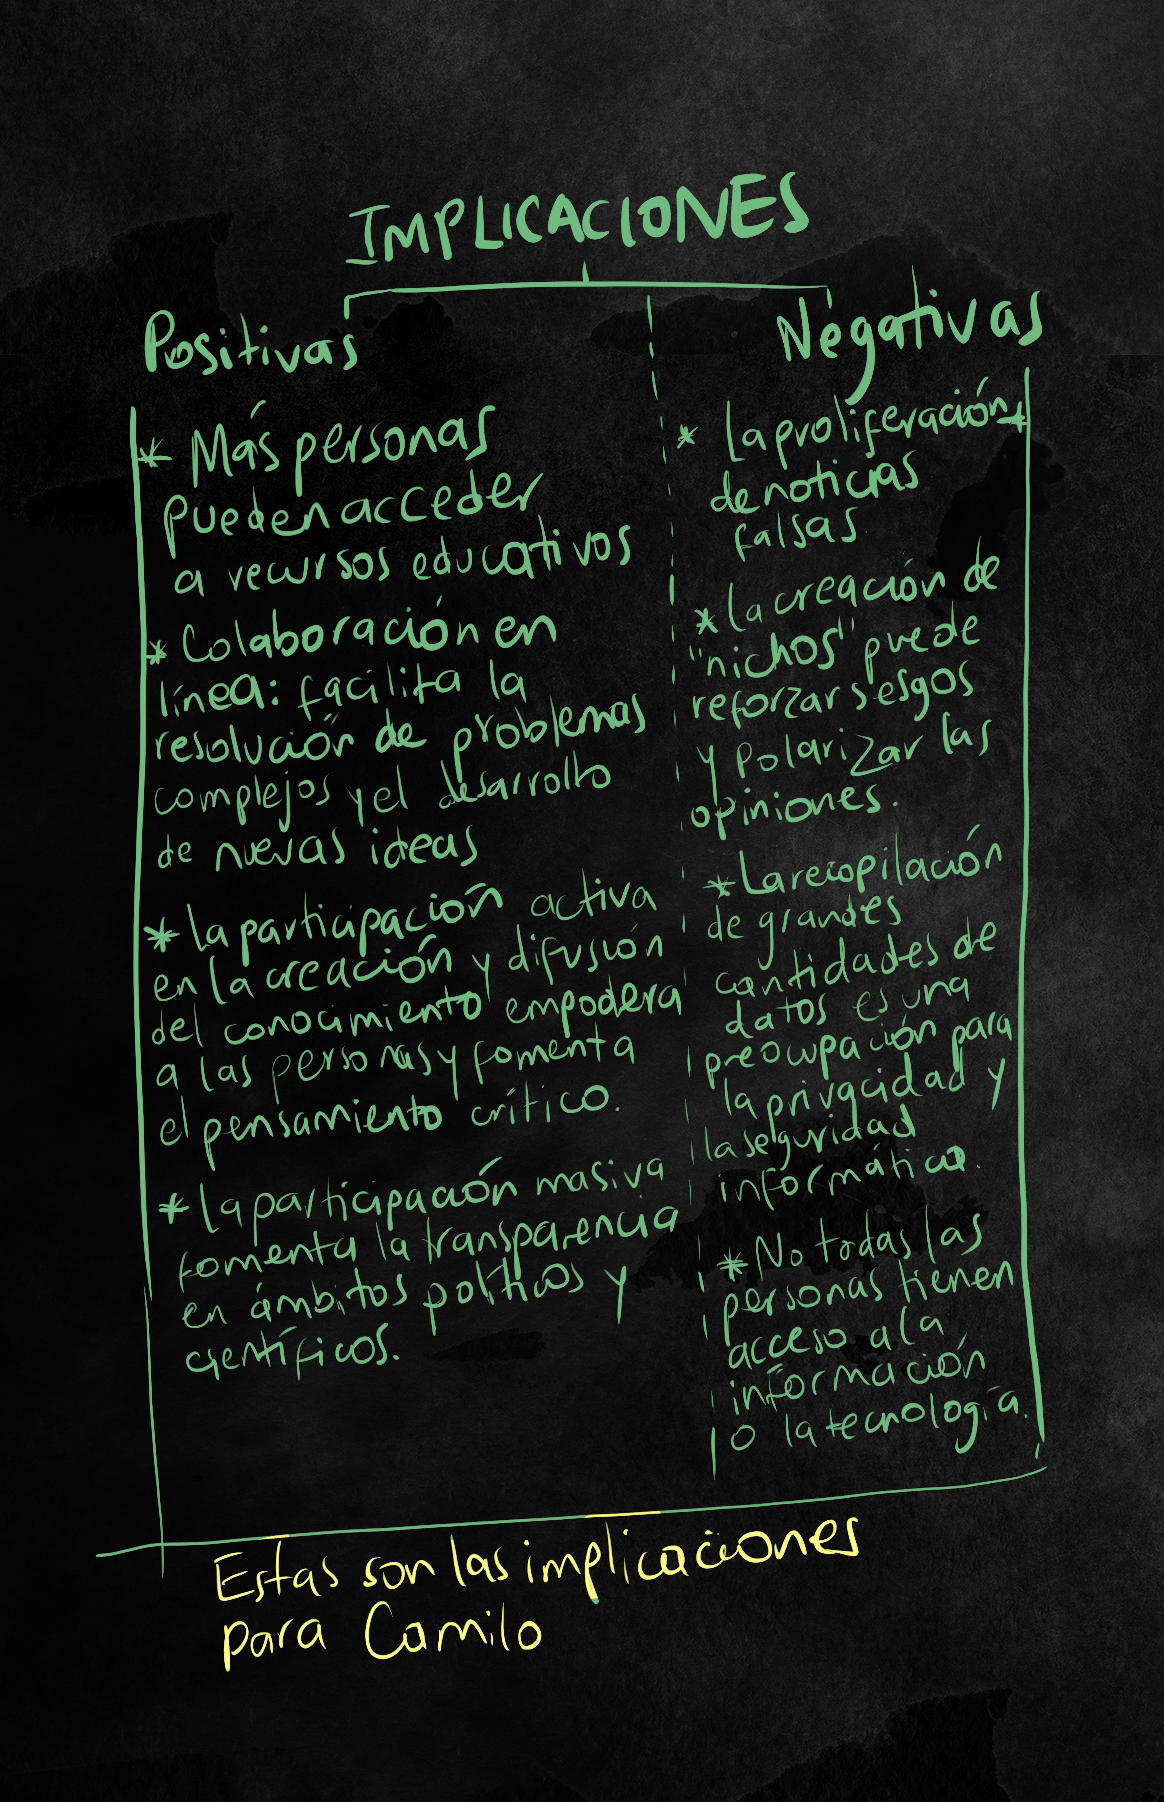 IMPLICACIONES
Positivas
* Más personas
pueden acceder
a recursos educativos
* Colaboración en
línea: facilita la
resolución de problemas
complejos y el desarrollo
de nuevas ideas
* La participación activa
en la creación y difusión
del conocimiento empodera
a las personas y fomenta
el pensamiento crítico.
* La participación masiva
fomenta la transparencia
en ámbitos políticos y
científicos.
Negativas
* La proliferación
de noticias
falsas.
* La creación de
"nichos" puede
reforzar sesgos
y polarizar las
opiniones.
* La recopilación
de grandes
cantidades de
datos es una
preocupación para
la privacidad y
la seguridad
informática.
* No todas las
personas tienen
acceso a la
información
o la tecnología.
Estas son las implicaciones
para Camilo